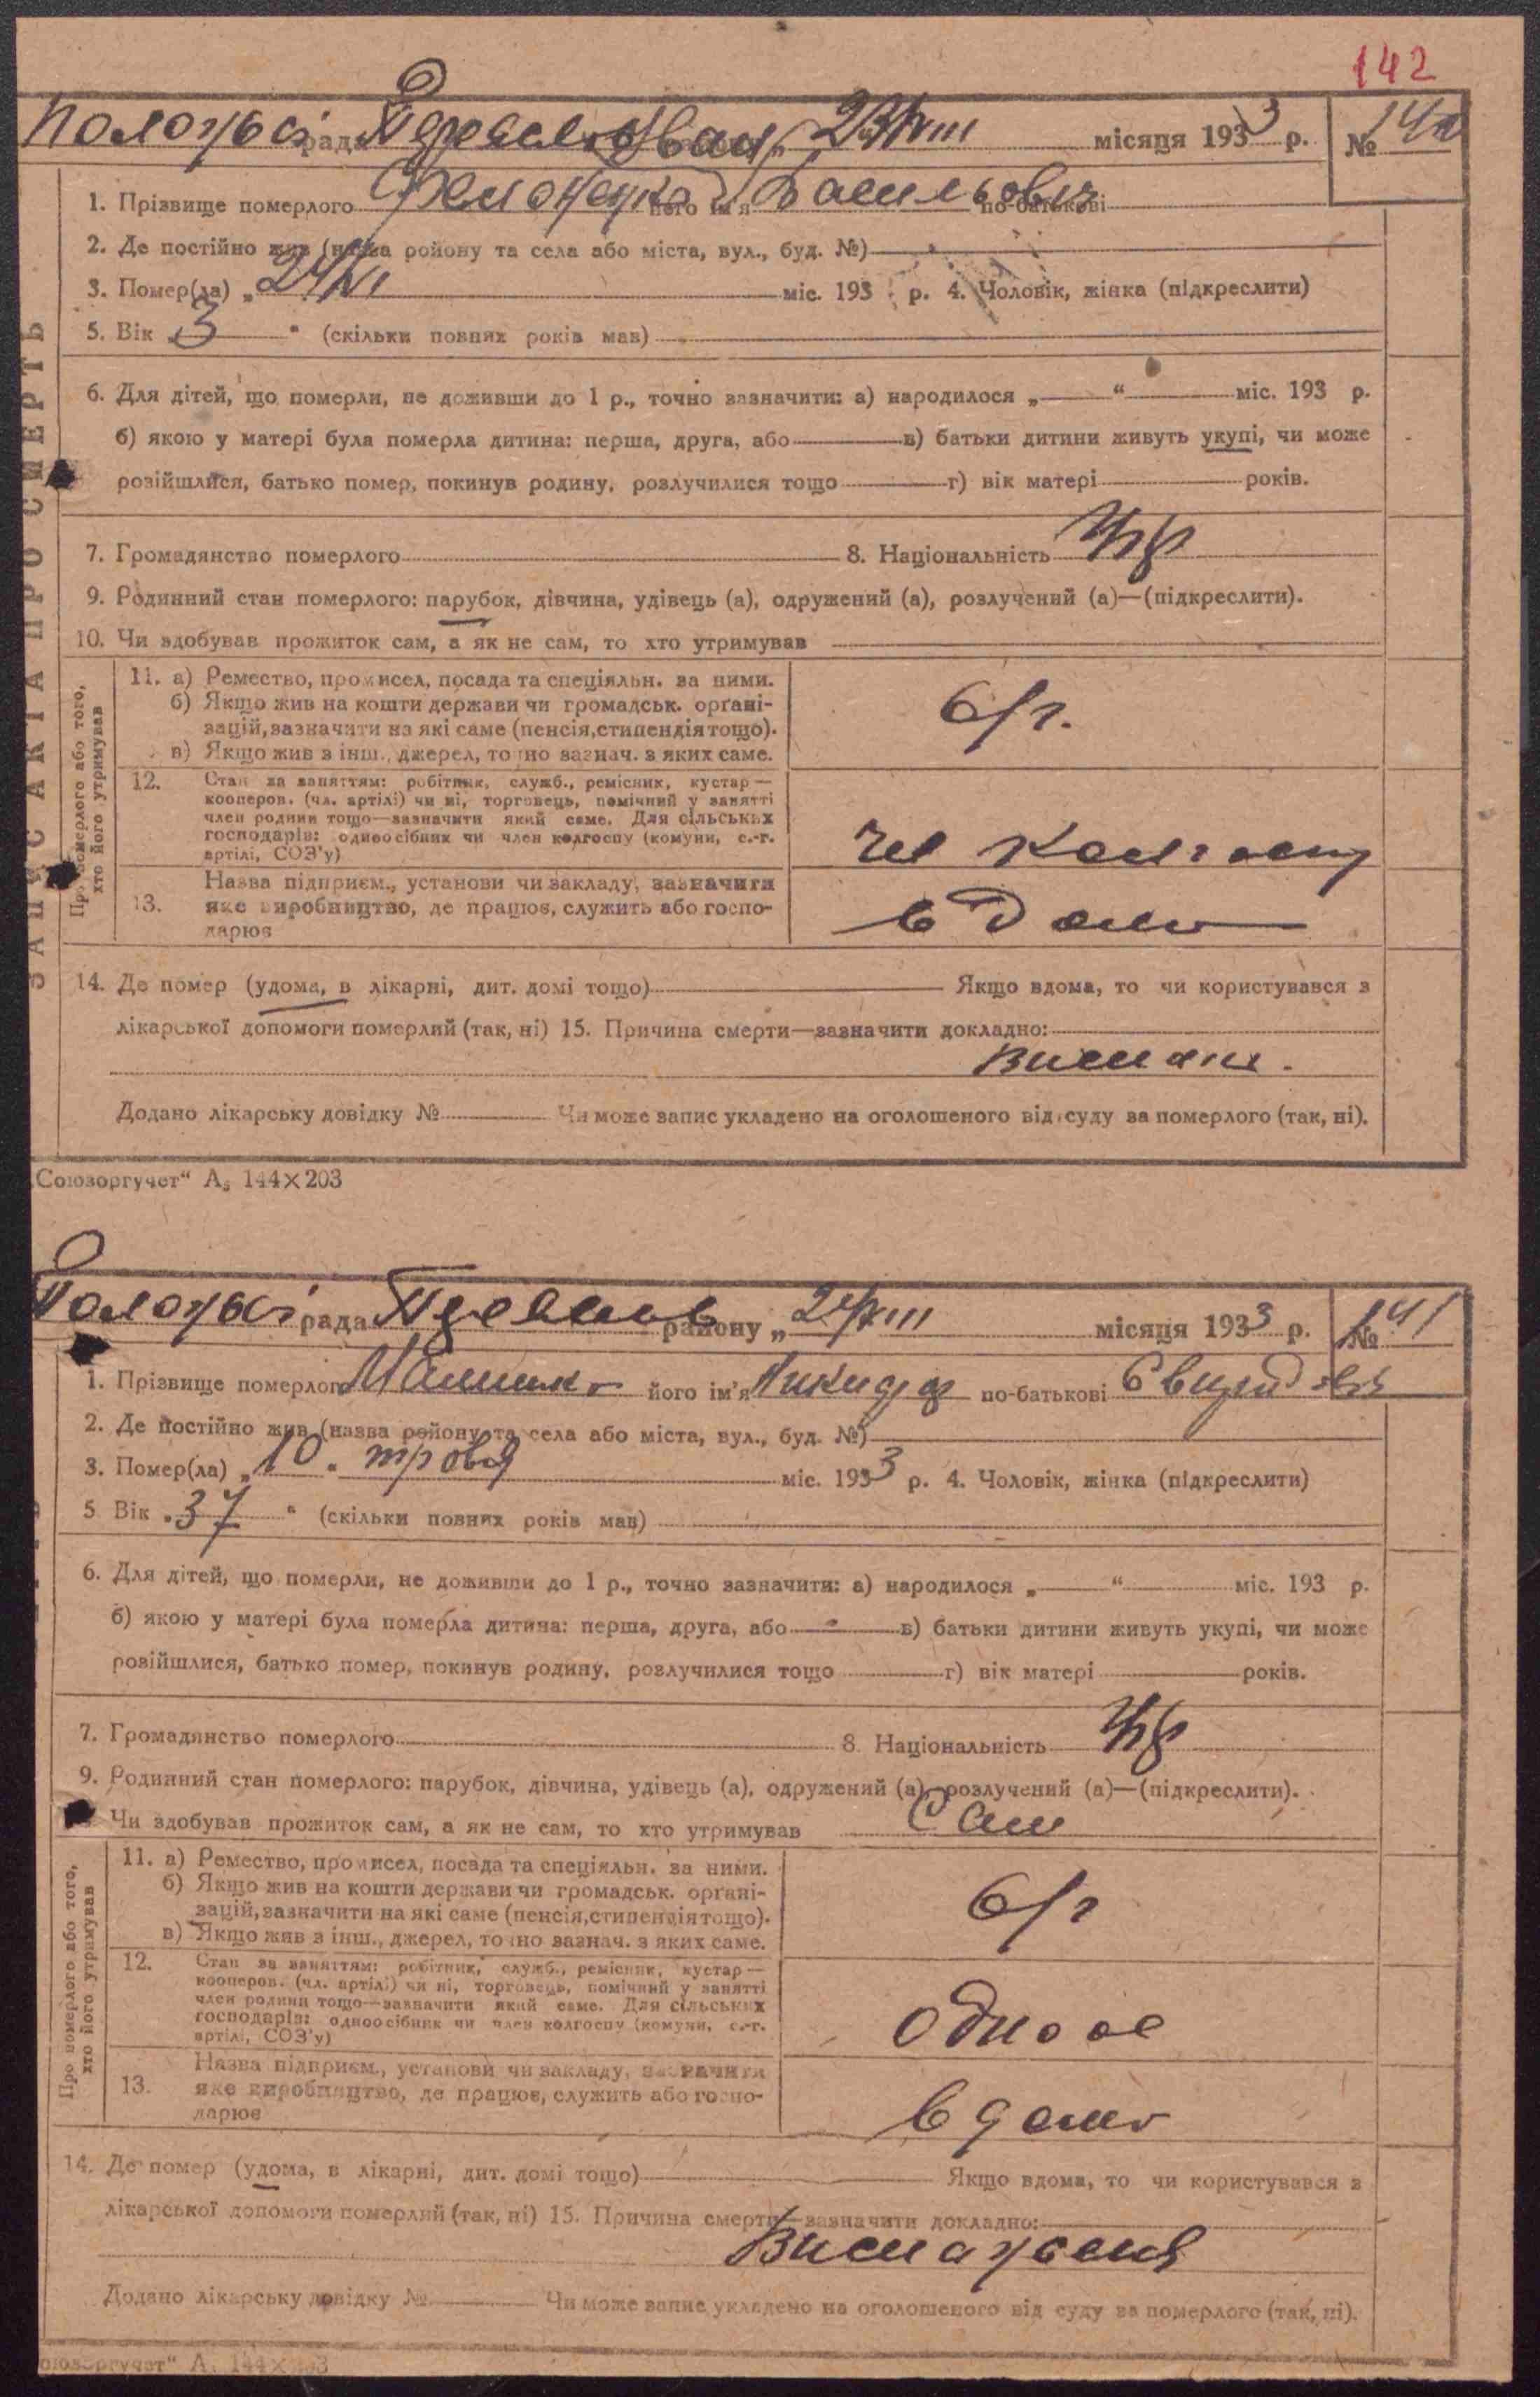 142
Положсі рада Переяслов 23/VIII місяця 1933 р. № 140
1. Прізвище померлого його ім'я Іван по-батькові Васильович
2. Де постійно жив (назва району та села або міста, вул., буд. №)
3. Помер(ла) „ міс. 193 р. 4. Чоловік, жінка (підкреслити)
5. Вік „3 “ (скільки повних років мав)
6. Для дітей, що померли, не доживши до 1 р., точно зазначити: а) народилося „ “ міс. 193 р.
б) якою у матері була померла дитина: перша, друга, або в) батьки дитини живуть укупі, чи може
розійшлися, батько помер, покинув родину, розлучилися тощо г) вік матері років.
7. Громадянство померлого 8. Національність Укр
9. Родинний стан померлого: парубок, дівчина, удівець (а), одружений (а), розлучений (а)—(підкреслити).
10. Чи здобував прожиток сам, а як не сам, то хто утримував
ЗАПИС АКТА ПРО СМЕРТЬ
Про померлого або того,
хто його утримував
11. а) Ремество, промисел, посада та спеціяльн. за ними.
б) Якщо жив на кошти держави чи громадськ. орґані-
зацій, зазначити на які саме (пенсія, стипендія тощо).
в) Якщо жив з інш., джерел, точно зазнач. з яких саме.
б/г.
12. Стан за заняттям: робітник, служб., ремісник, кустар—
кооперов. (чл. артілі) чи ні, торговець, помічний у занятті
член родини тощо—зазначити який саме. Для сільських
господарів: одноосібник чи член колгоспу (комуни, с.-г.
артілі, СОЗ'у)
чл колгоспу
13. Назва підприєм., установи чи закладу, зазначити
яке виробництво, де працює, служить або госпо-
дарює
вдома
14. Де помер (удома, в лікарні, дит. домі тощо) Якщо вдома, то чи користувався з
лікарської допомоги померлий (так, ні) 15. Причина смерти—зазначити докладно:
Додано лікарську довідку № Чи може запис укладено на оголошеного від суду за померлого (так, ні).
„Союзоргучет“ А₅ 144×203
Положсі рада району „24/VIII місяця 1933 р. № 141
1. Прізвище померлого його ім'я Никифор по-батькові
2. Де постійно жив (назва району та села або міста, вул., буд. №)
3. Помер(ла) „10 “ травня міс. 1933 р. 4. Чоловік, жінка (підкреслити)
5 Вік „37 “ (скільки повних років мав)
6. Для дітей, що померли, не доживши до 1 р., точно зазначити: а) народилося „ “ міс. 193 р.
б) якою у матері була померла дитина: перша, друга, або в) батьки дитини живуть укупі, чи може
розійшлися, батько помер, покинув родину, розлучилися тощо г) вік матері років.
7. Громадянство померлого 8. Національність Укр
9. Родинний стан померлого: парубок, дівчина, удівець (а), одружений (а), розлучений (а)—(підкреслити).
Чи здобував прожиток сам, а як не сам, то хто утримував Сам
Про померлого або того,
хто його утримував
11. а) Ремество, промисел, посада та спеціяльн. за ними.
б) Якщо жив на кошти держави чи громадськ. орґані-
зацій, зазначити на які саме (пенсія, стипендія тощо).
в) Якщо жив з інш., джерел, точно зазнач. з яких саме.
б/г
12. Стан за заняттям: робітник, служб., ремісник, кустар—
кооперов. (чл. артілі) чи ні, торговець, помічний у занятті
член родини тощо—зазначити який саме. Для сільських
господарів: одноосібник чи член колгоспу (комуни, с.-г.
артілі, СОЗ'у)
одноос
13. Назва підприєм., установи чи закладу, зазначити
яке виробництво, де працює, служить або госпо-
дарює
вдома
14. Де помер (удома, в лікарні, дит. домі тощо) Якщо вдома, то чи користувався з
лікарської допомоги померлий (так, ні) 15. Причина смерти—зазначити докладно:
Виснаження
Додано лікарську довідку № Чи може запис укладено на оголошеного від суду за померлого (так, ні).
оюзоргучет“ А₅ 144×203